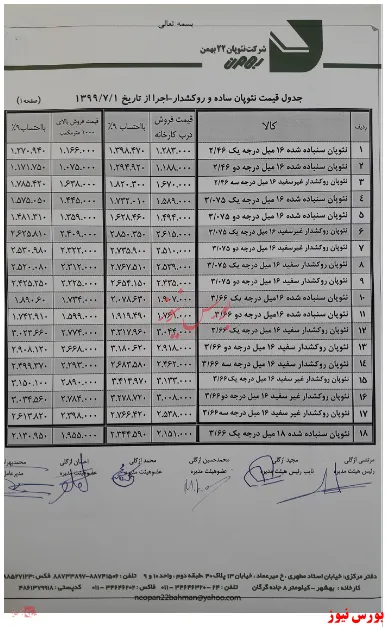 بسمه تعالی
شرکت نئوپان ۲۲ بهمن
جدول قیمت نئوپان ساده و روکشدار-اجرا از تاریخ ۱۳۹۹/۷/۱ (صفحه۱)
ردیف کالا قیمت فروش درب کارخانه بااحتساب ۹% قیمت فروش بالای ۱۰۰۰ مترمکعب بااحتساب ۹%
۱ نئوپان سنباده شده ۱۶ میل درجه یک ۲/۴۶ ۱.۲۸۳.۰۰۰ ۱.۳۹۸.۴۷۰ ۱.۱۶۶.۰۰۰ ۱.۲۷۰.۹۴۰
۲ نئوپان سنباده شده ۱۶ میل درجه دو ۲/۴۶ ۱.۱۸۸.۰۰۰ ۱.۲۹۴.۹۲۰ ۱.۰۷۵.۰۰۰ ۱.۱۷۱.۷۵۰
۳ نئوپان روکشدار غیرسفید ۱۶ میل درجه سه ۲/۴۶ ۱.۶۷۰.۰۰۰ ۱.۸۲۰.۳۰۰ ۱.۶۳۸.۰۰۰ ۱.۷۸۵.۴۲۰
۴ نئوپان سنباده شده ۱۶ میل درجه یک ۳/۰۷۵ ۱.۵۸۹.۰۰۰ ۱.۷۳۲.۰۱۰ ۱.۴۴۵.۰۰۰ ۱.۵۷۵.۰۵۰
۵ نئوپان سنباده شده ۱۶ میل درجه دو ۳/۰۷۵ ۱.۴۹۴.۰۰۰ ۱.۶۲۸.۴۶۰ ۱.۳۵۹.۰۰۰ ۱.۴۸۱.۳۱۰
۶ نئوپان روکشدار غیرسفید ۱۶میل درجه یک ۳/۰۷۵ ۲.۶۱۵.۰۰۰ ۲.۸۵۰.۳۵۰ ۲.۴۰۹.۰۰۰ ۲.۶۲۵.۸۱۰
۷ نئوپان روکشدار غیرسفید ۱۶میل درجه دو ۳/۰۷۵ ۲.۵۱۰.۰۰۰ ۲.۷۳۵.۹۰۰ ۲.۳۲۲.۰۰۰ ۲.۵۳۰.۹۸۰
۸ نئوپان روکشدار سفید ۱۶ میل درجه یک ۳/۰۷۵ ۲.۵۳۹.۰۰۰ ۲.۷۶۷.۵۱۰ ۲.۳۱۲.۰۰۰ ۲.۵۲۰.۰۸۰
۹ نئوپان روکشدار سفید ۱۶ میل درجه دو ۳/۰۷۵ ۲.۴۳۵.۰۰۰ ۲.۶۵۴.۱۵۰ ۲.۲۲۵.۰۰۰ ۲.۴۲۵.۲۵۰
۱۰ نئوپان سنباده شده ۱۶میل درجه یک ۳/۶۶ ۱.۹۰۷.۰۰۰ ۲.۰۷۸.۶۳۰ ۱.۷۳۴.۰۰۰ ۱.۸۹۰.۰۶۰
۱۱ نئوپان سنباده شده ۱۶میل درجه دو ۳/۶۶ ۱.۹۱۹.۴۹۰ ۱.۵۹۹.۰۰۰ ۱.۷۴۲.۹۱۰
۱۲ نئوپان روکشدار سفید ۱۶ میل درجه یک ۳/۶۶ ۳.۰۴۴.۰۰۰ ۳.۳۱۷.۹۶۰ ۲.۷۷۴.۰۰۰ ۳.۰۲۳.۶۶۰
۱۳ نئوپان روکشدار سفید ۱۶ میل درجه دو ۳/۶۶ ۲.۹۱۸.۰۰۰ ۳.۱۸۰.۶۲۰ ۲.۶۶۸.۰۰۰ ۲.۹۰۸.۱۲۰
۱۴ نئوپان روکشدار سفید ۱۶ میل درجه سه ۳/۶۶ ۲.۴۶۲.۰۰۰ ۲.۶۸۳.۵۸۰ ۲.۲۹۳.۰۰۰ ۲.۴۹۹.۳۷۰
۱۵ نئوپان روکشدار غیر سفید ۱۶ میل درجه یک ۳/۶۶ ۳.۱۳۳.۰۰۰ ۳.۴۱۴.۹۷۰ ۲.۸۹۰.۰۰۰ ۳.۱۵۰.۱۰۰
۱۶ نئوپان روکشدار غیر سفید ۱۶ میل درجه دو ۳/۶۶ ۳.۰۰۸.۰۰۰ ۳.۲۷۸.۷۲۰ ۲.۷۸۴.۰۰۰ ۳.۰۳۴.۵۶۰
۱۷ نئوپان روکشدار غیر سفید ۱۶ میل درجه سه ۳/۶۶ ۲.۵۳۸.۰۰۰ ۲.۷۶۶.۴۲۰ ۲.۳۹۸.۰۰۰ ۲.۶۱۳.۸۲۰
۱۸ نئوپان سنباده شده ۱۸ میل درجه یک ۳/۶۶ ۲.۱۵۱.۰۰۰ ۲.۳۴۴.۵۹۰ ۱.۹۵۵.۰۰۰ ۲.۱۳۰.۹۵۰
مرتضی ازگلی مجید ازگلی محمدحسین ازگلی محمد ازگلی احسان ازگلی
رئیس هیئت مدیره نایب رئیس هیئت مدیره عضوهیئت مدیره عضوهیئت مدیره عضوهیئت مدیره مدیرعامل
دفتر مرکزی: خیابان استاد مطهری، خ میرعماد، خیابان ۱۳ پلاک ۳۰ طبقه دوم، واحد ۱۰ و ۹ تلفن:
کارخانه : بهشهر - کیلومتر ۸ جاده گرگان تلفن: فکس: کدپستی:
neopan22bahman@yahoo.com
بورس نیوز